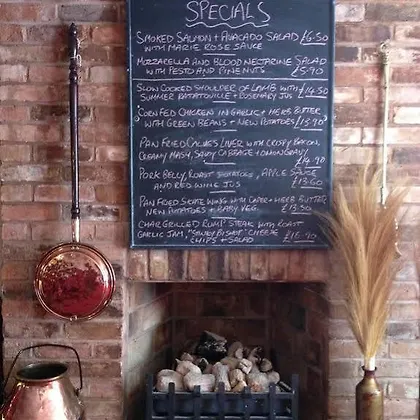 SPECIALS
SMOKED SALMON + AVACADO SALAD £6.50
WITH MARIE ROSE SAUCE
MOZZARELLA AND BLOOD NECTARINE SALAD
WITH PESTO AND PINE NUTS £5.90
SLOW COOKED SHOULDER OF LAMB WITH £14.50
SUMMER RATATOUILLE + ROSEMARY JUS
CORN FED CHICKEN IN GARLIC + HERB BUTTER
WITH GREEN BEANS + NEW POTATOES £13.90
PAN FRIED CALVES LIVER WITH CRISPY BACON,
CREAMY MASH, SAVOY CABBAGE + ONION GRAVY
£14.90
PORK BELLY, ROAST POTATOES, APPLE SAUCE
AND RED WINE JUS £13.60
PAN FRIED SKATE WING WITH CAPER + HERB BUTTER
NEW POTATOES + BABY VEG £13.50
CHAR GRILLED RUMP STEAK WITH ROAST
GARLIC JAM, "STINKY BISHOP" CHEESE
CHIPS + SALAD £16.90